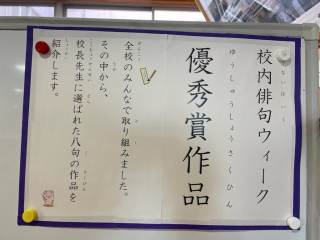 校内俳句ウィーク
優秀賞作品
ゆうしゅうしょうさくひん
全校のみんなで取り組みました。
その中から、
校長先生に選ばれた八句の作品を
紹介します。